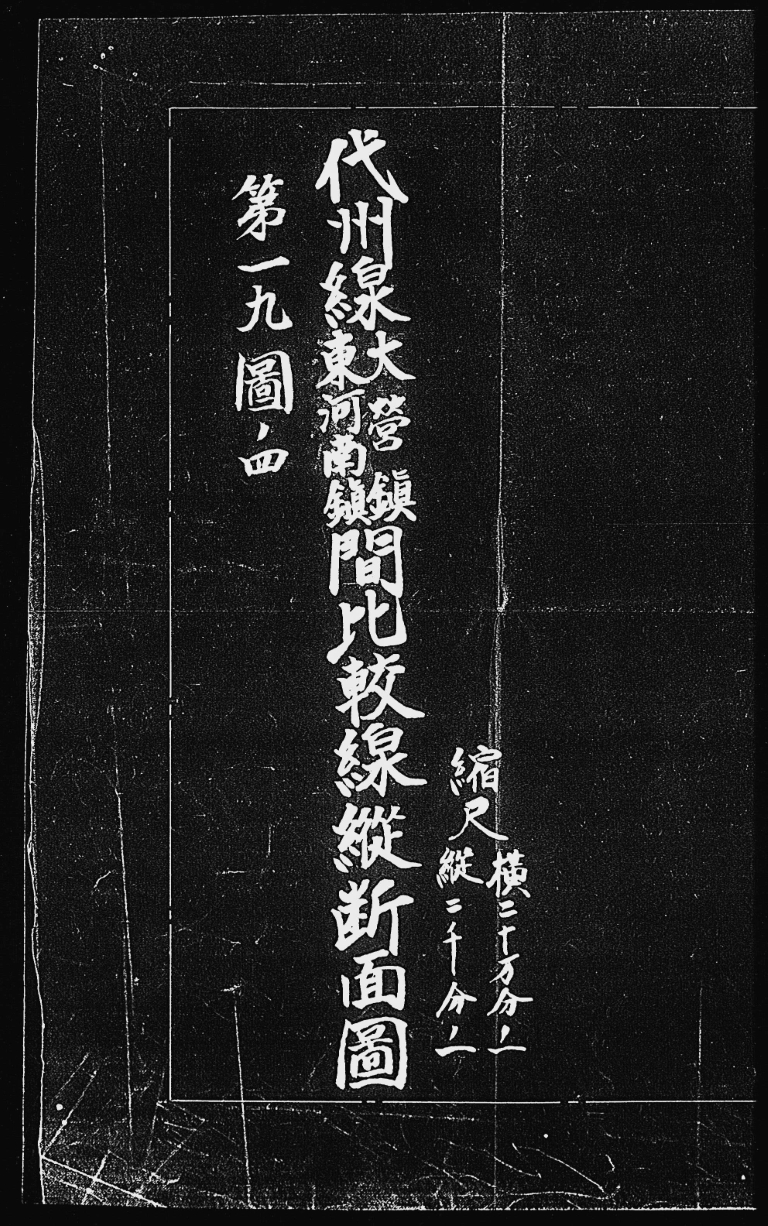 縮尺
橫二十万分ノ一
縱二千分ノ一
代州線
大營鎭
東河南鎭
間比較線縱断面圖
第一九圖ノ四